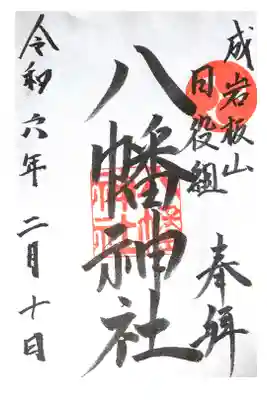 奉拝
成岩板山
目役組
八幡神社
令和六年二月十日